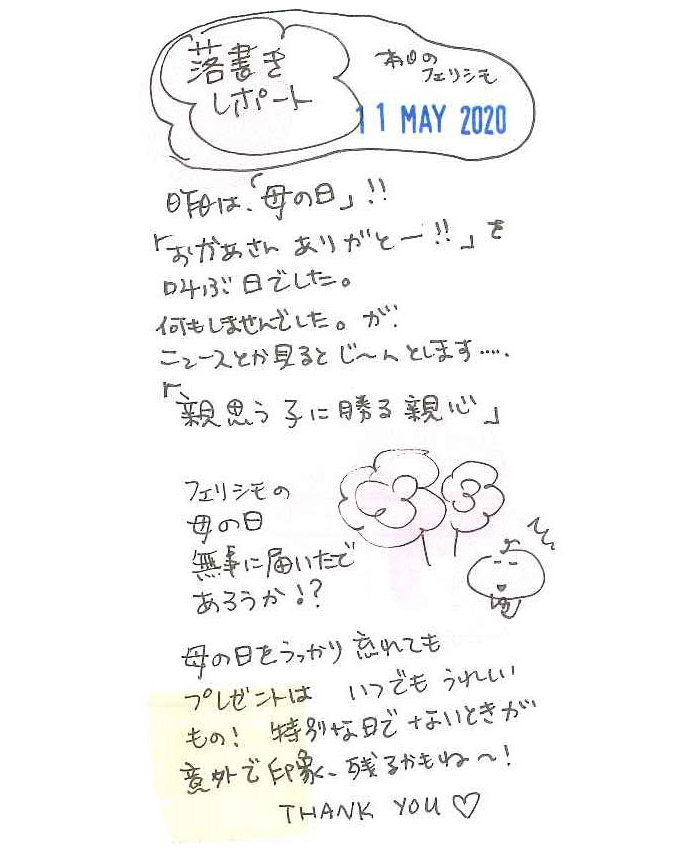 落書き
レポート
本日の
フェリシモ
11 MAY 2020
昨日は、「母の日」!!
「おかあさん ありがとー!!」を
叫ぶ日でした。
何もしませんでした。が、
ニュースとか見るとじ〜んとします‥‥.
「親思う子に勝る親心」
フェリシモの
母の日
無事に届いたで
あろうか!?
母の日をうっかり忘れても
プレゼントは いつでも うれしい
もの! 特別な日でないときが
意外で印象、残るかもね〜!
THANK YOU ♡